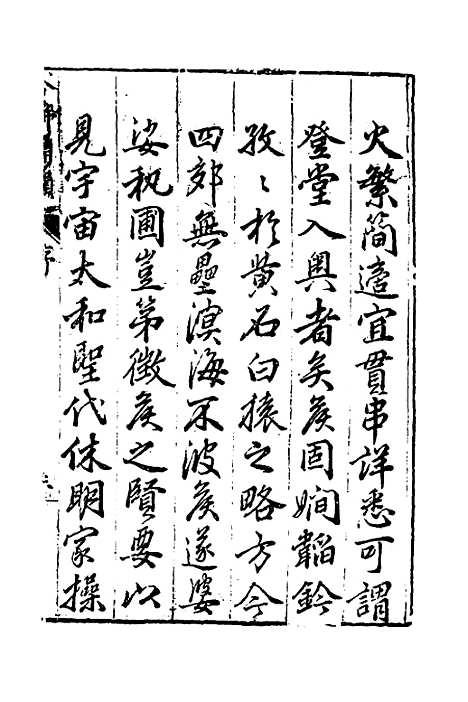 火繁簡適宜貫串詳悉可謂
登堂入輿者矣侯固嫻韜鈐
孜〻於黄石白猿之略方今
四郊無壘溟海不波侯遂婆
娑秇圃豈第徴侯之賢要以
見宇宙太和聖代休明家操
序